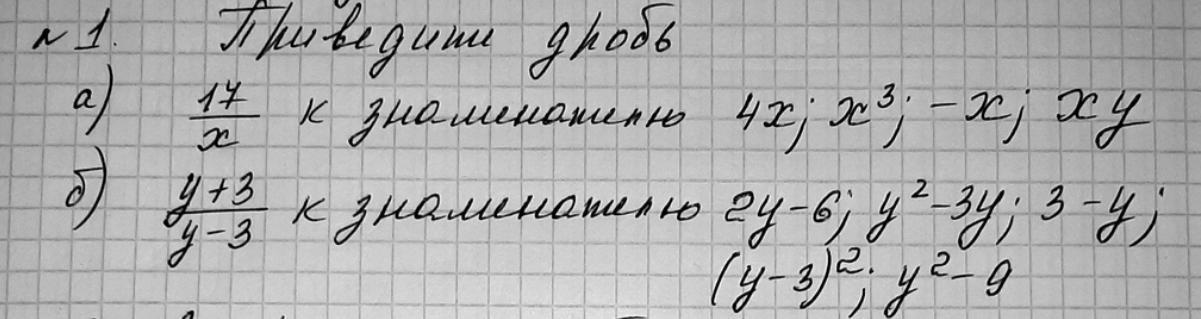 № 1. Приведите дробь
а) 17/x к знаменателю 4x; x³; -x; xy
б) y+3/y-3 к знаменателю 2y-6; y²-3y; 3-y;
(y-3)²; y²-9